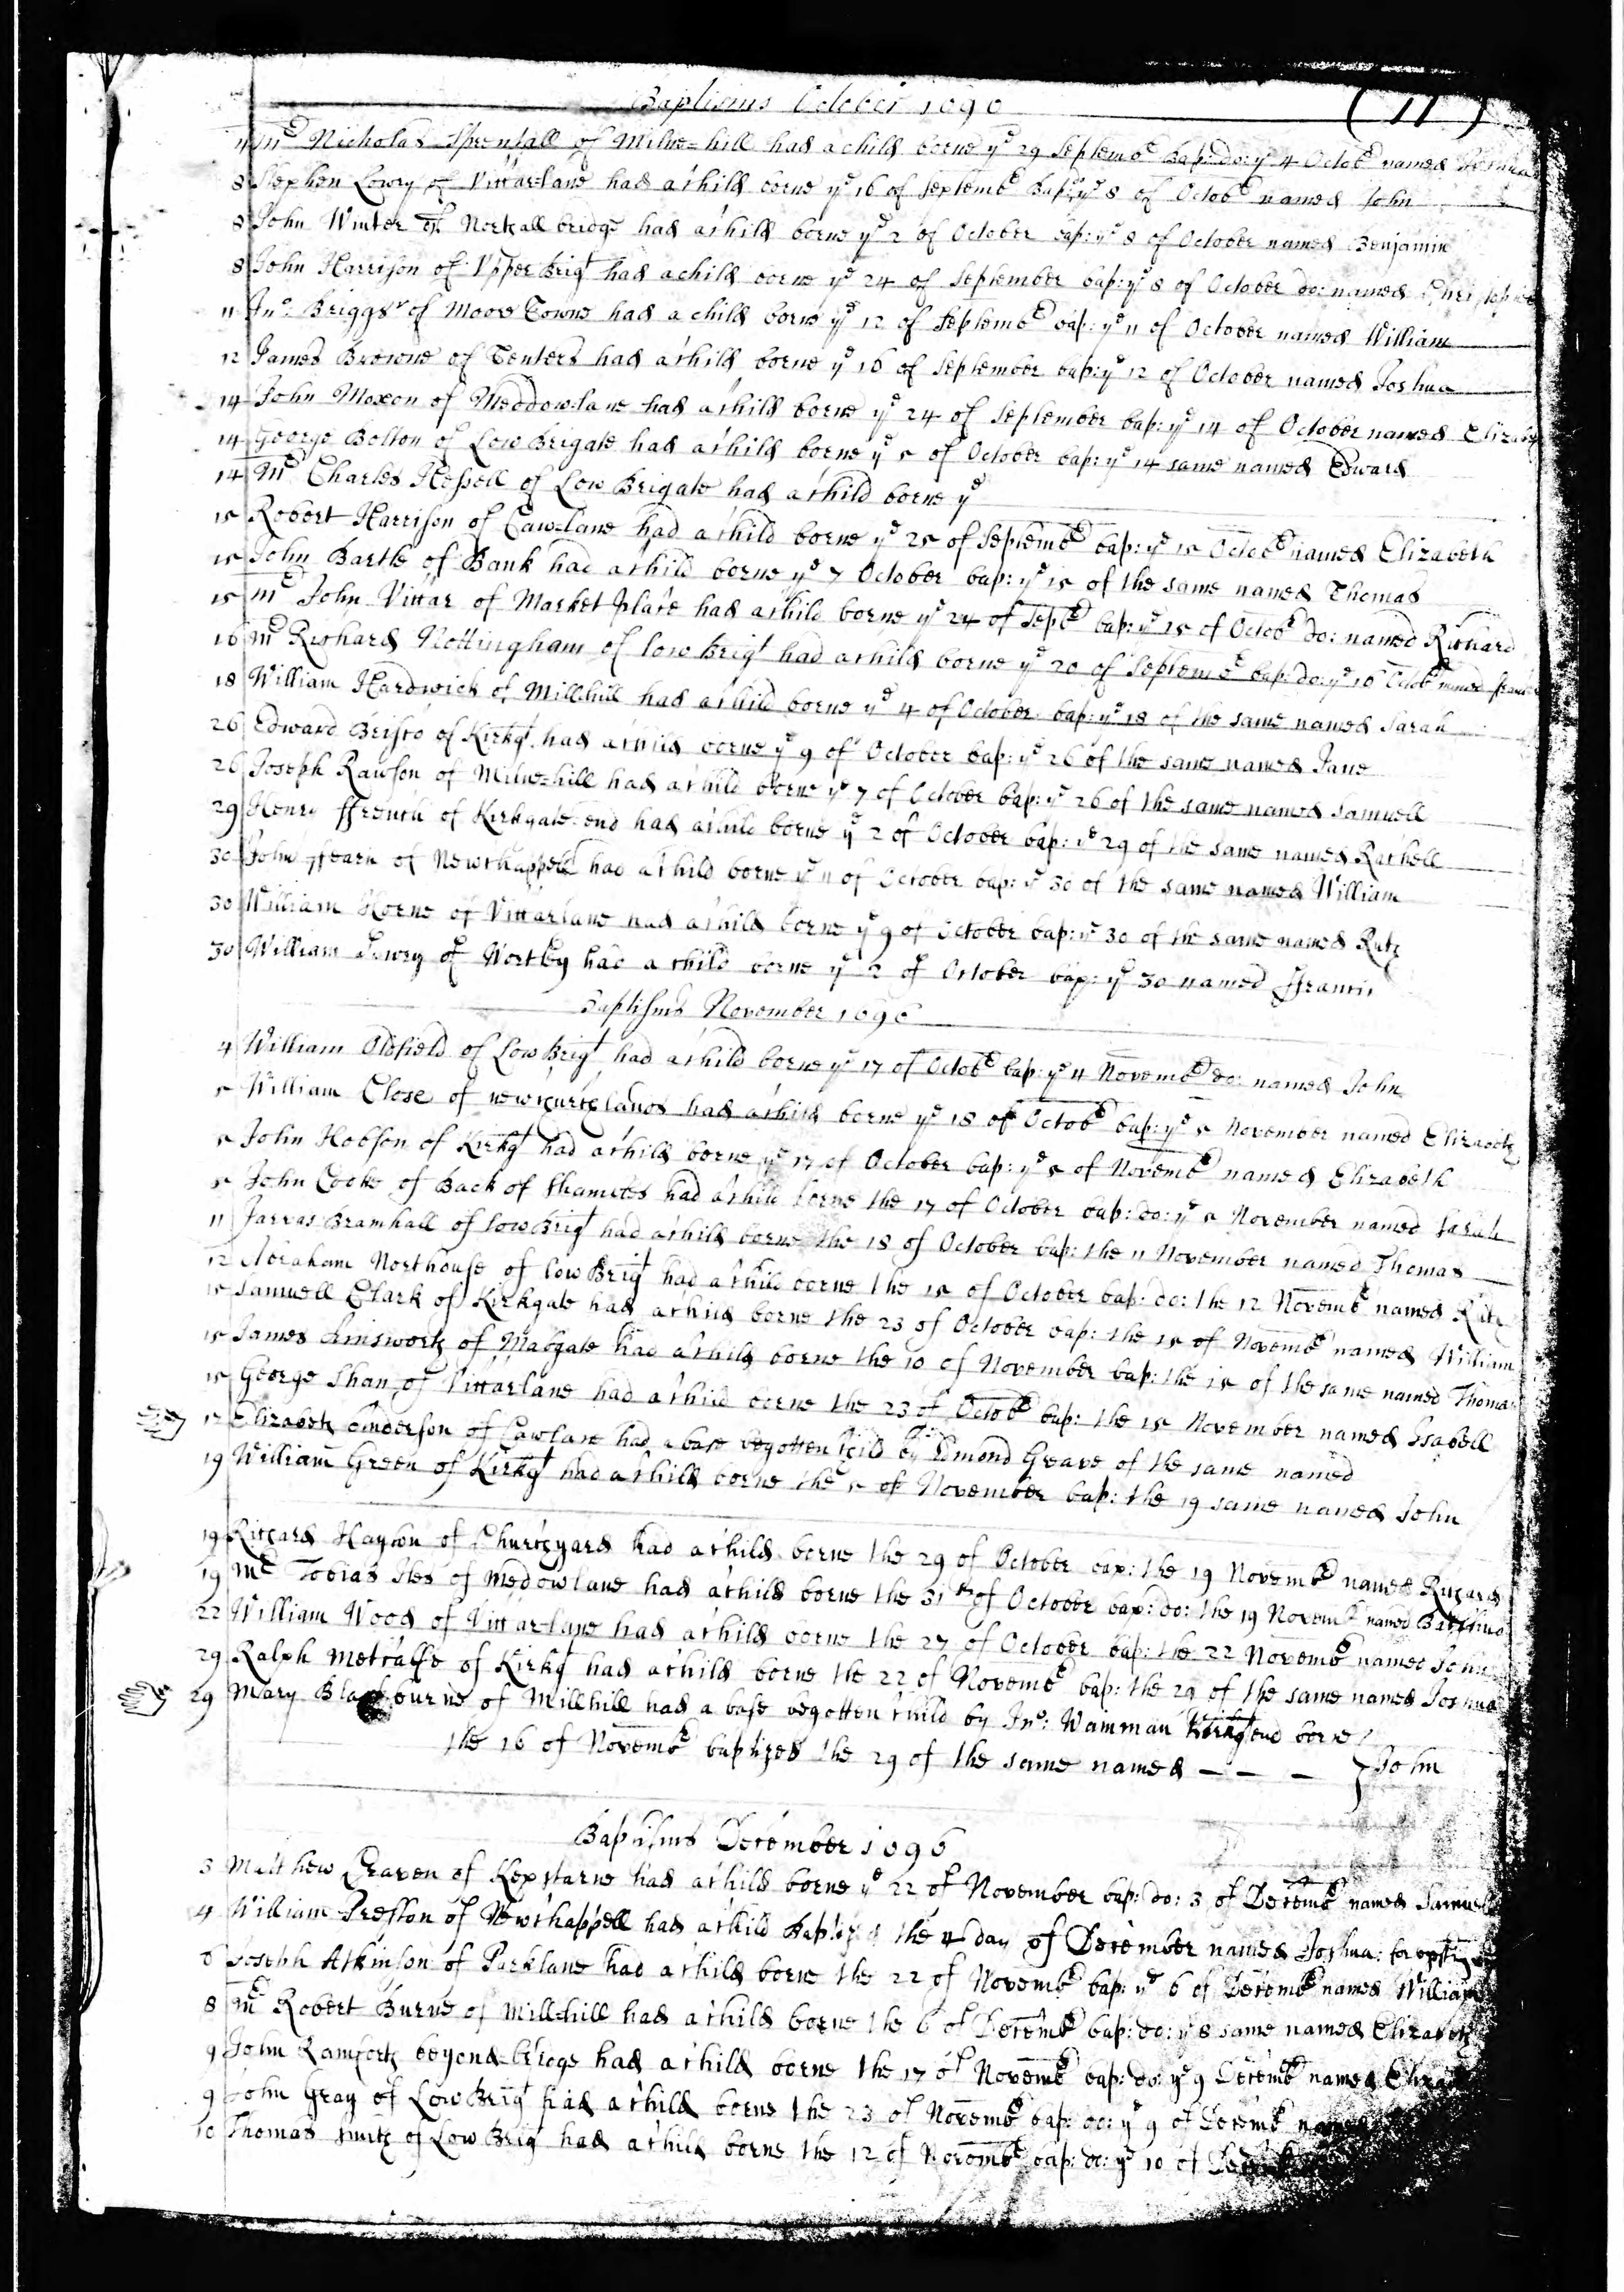 Baptisms October 1696
( 11 )
4 Mr Nicholas of Milne=hill had a child borne ye 29 Septembr bap: do: ye 4 Octobr named
8 Stephen Lowry of Vittarlane had a child borne ye 16 of Septembr bap: ye 8 of Octobr named John
8 John Winter of Northall bridge had a child borne ye 2 of October bap: ye 8 of October named Benjamin
8 John Harrison of Vpper Brigt had a child borne ye 24 of September bap: ye 8 of October do: named Christopher
11 Jno: Briggs of Moore Towne had a child borne ye 12 of Septembr bap: ye 11 of October named William
12 James Browne of Tenters had a child borne ye 16 of September bap: ye 12 of October named Joshua
14 John Moxon of Meddowlane had a child borne ye 24 of September bap: ye 14 of October named Elizabeth
14 George Bolton of Low Brigate had a child borne ye 5 of October bap: ye 14 same named Edward
14 Mr Charles Hessell of Low Brigate had a child borne ye
15 Robert Harrison of Cawlane had a child borne ye 25 of Septembr bap: ye 15 Octobr named Elizabeth
15 John Bartle of Bank had a child borne ye 7 October bap: ye 15 of the same named Thomas
15 Mr John Vittar of Market place had a child borne ye 24 of Septbr bap: ye 15 of Octobr do: named Richard
16 Mr Richard Nottingham of Low Brigt had a child borne ye 20 of Septembr bap: do: ye 16 Octobr named
18 William Hardwick of Millhill had a child borne ye 4 of October bap: ye 18 of the same named Sarah
26 Edward Brisco of Kirkgt had a child borne ye 9 of October bap: ye 26 of the same named Jane
26 Joseph Rawson of Milne=hill had a child borne ye 7 of October bap: ye 26 of the same named Samuell
29 Henry ffrench of Kirkgate end had a child borne ye 2 of October bap: ye 29 of the same named Rachell
30 John ffearn of Newchappell had a child borne ye 11 of October bap: ye 30 of the same named William
30 William Horne of Vittarlane had a child borne ye 9 of October bap: ye 30 of the same named Ruth
30 William Lowry of Wortley had a child borne ye 2 of October bap: ye 30 named ffrancis
Baptisms November 1696
4 William Oldfield of Low Brigt had a child borne ye 17 of Octobr bap: ye 4 Novembr do: named John
5 William Close of had a child borne ye 18 of Octobr bap: ye 5 November named Elizabeth
5 John Hobson of Kirkgt had a child borne ye 17 of October bap: ye 5 of Novembr named Elizabeth
5 John Cooke of Back of Shambles had a child borne the 17 of October bap: do: ye 5 November named Sarah
11 Jarvas Bramhall of Low Brigt had a child borne the 18 of October bap: the 11 November named Thomas
12 Abraham Northouse of Low Brigt had a child borne the 15 of October bap: do: the 12 Novembr named Ruth
15 Samuell Clark of Kirkgate had a child borne the 23 of October bap: the 15 of Novembr named William
15 James Ainsworth of Mabgate had a child borne the 10 of November bap: the 15 of the same named Thomas
15 George Shan of Vittarlane had a child borne the 23 of Octobr bap: the 15 November named Isabell
17 Elizabeth Anderson of Cawlane had a base begotten child by Edmond Grave of the same named
19 William Green of Kirkgt had a child borne the 5 of November bap: the 19 same named John
19 Richard Hayton of Churchyard had a child borne the 29 of October bap: the 19 Novembr named Richard
19 Mr Tobias Iles of Medowlane had a child borne the 31th of October bap: do: the 19 Novembr named
22 William Wood of Vittarlane had a child borne the 27 of October bap: the 22 Novembr named John
29 Ralph Metcalfe of Kirkgt had a child borne the 22 of Novembr bap: the 29 of the same named Joshua
29 Mary Blackburne of Millhill had a base begotten child by Jno: Wainman Kirkgt end borne
the 16 of Novembr baptized the 29 of the same named - - - } John
Baptisms December 1696
3 Matthew Craven of Kepstarne had a child borne ye 22 of November bap: do: 3 of Decembr named Samuell
4 William Preston of Newchappell had a child baptized the 4 day of December named Joshua:
6 Joseph Atkinson of Parklane had a child borne the 22 of Novembr bap: ye 6 of Decembr named William
8 Mr Robert Burne of Mill=hill had a child borne the 6 of Decembr bap: do: ye 8 same named Elizabeth
9 John beyond=bridge had a child borne the 17 of Novembr bap: do: ye 9 Decembr named
9 John Gray of Low Brigt had a child borne the 23 of Novembr bap: do: ye 9 of Decembr named
10 Thomas Smith of Low Brigt had a child borne the 12 of Novembr bap: do: ye 10 of